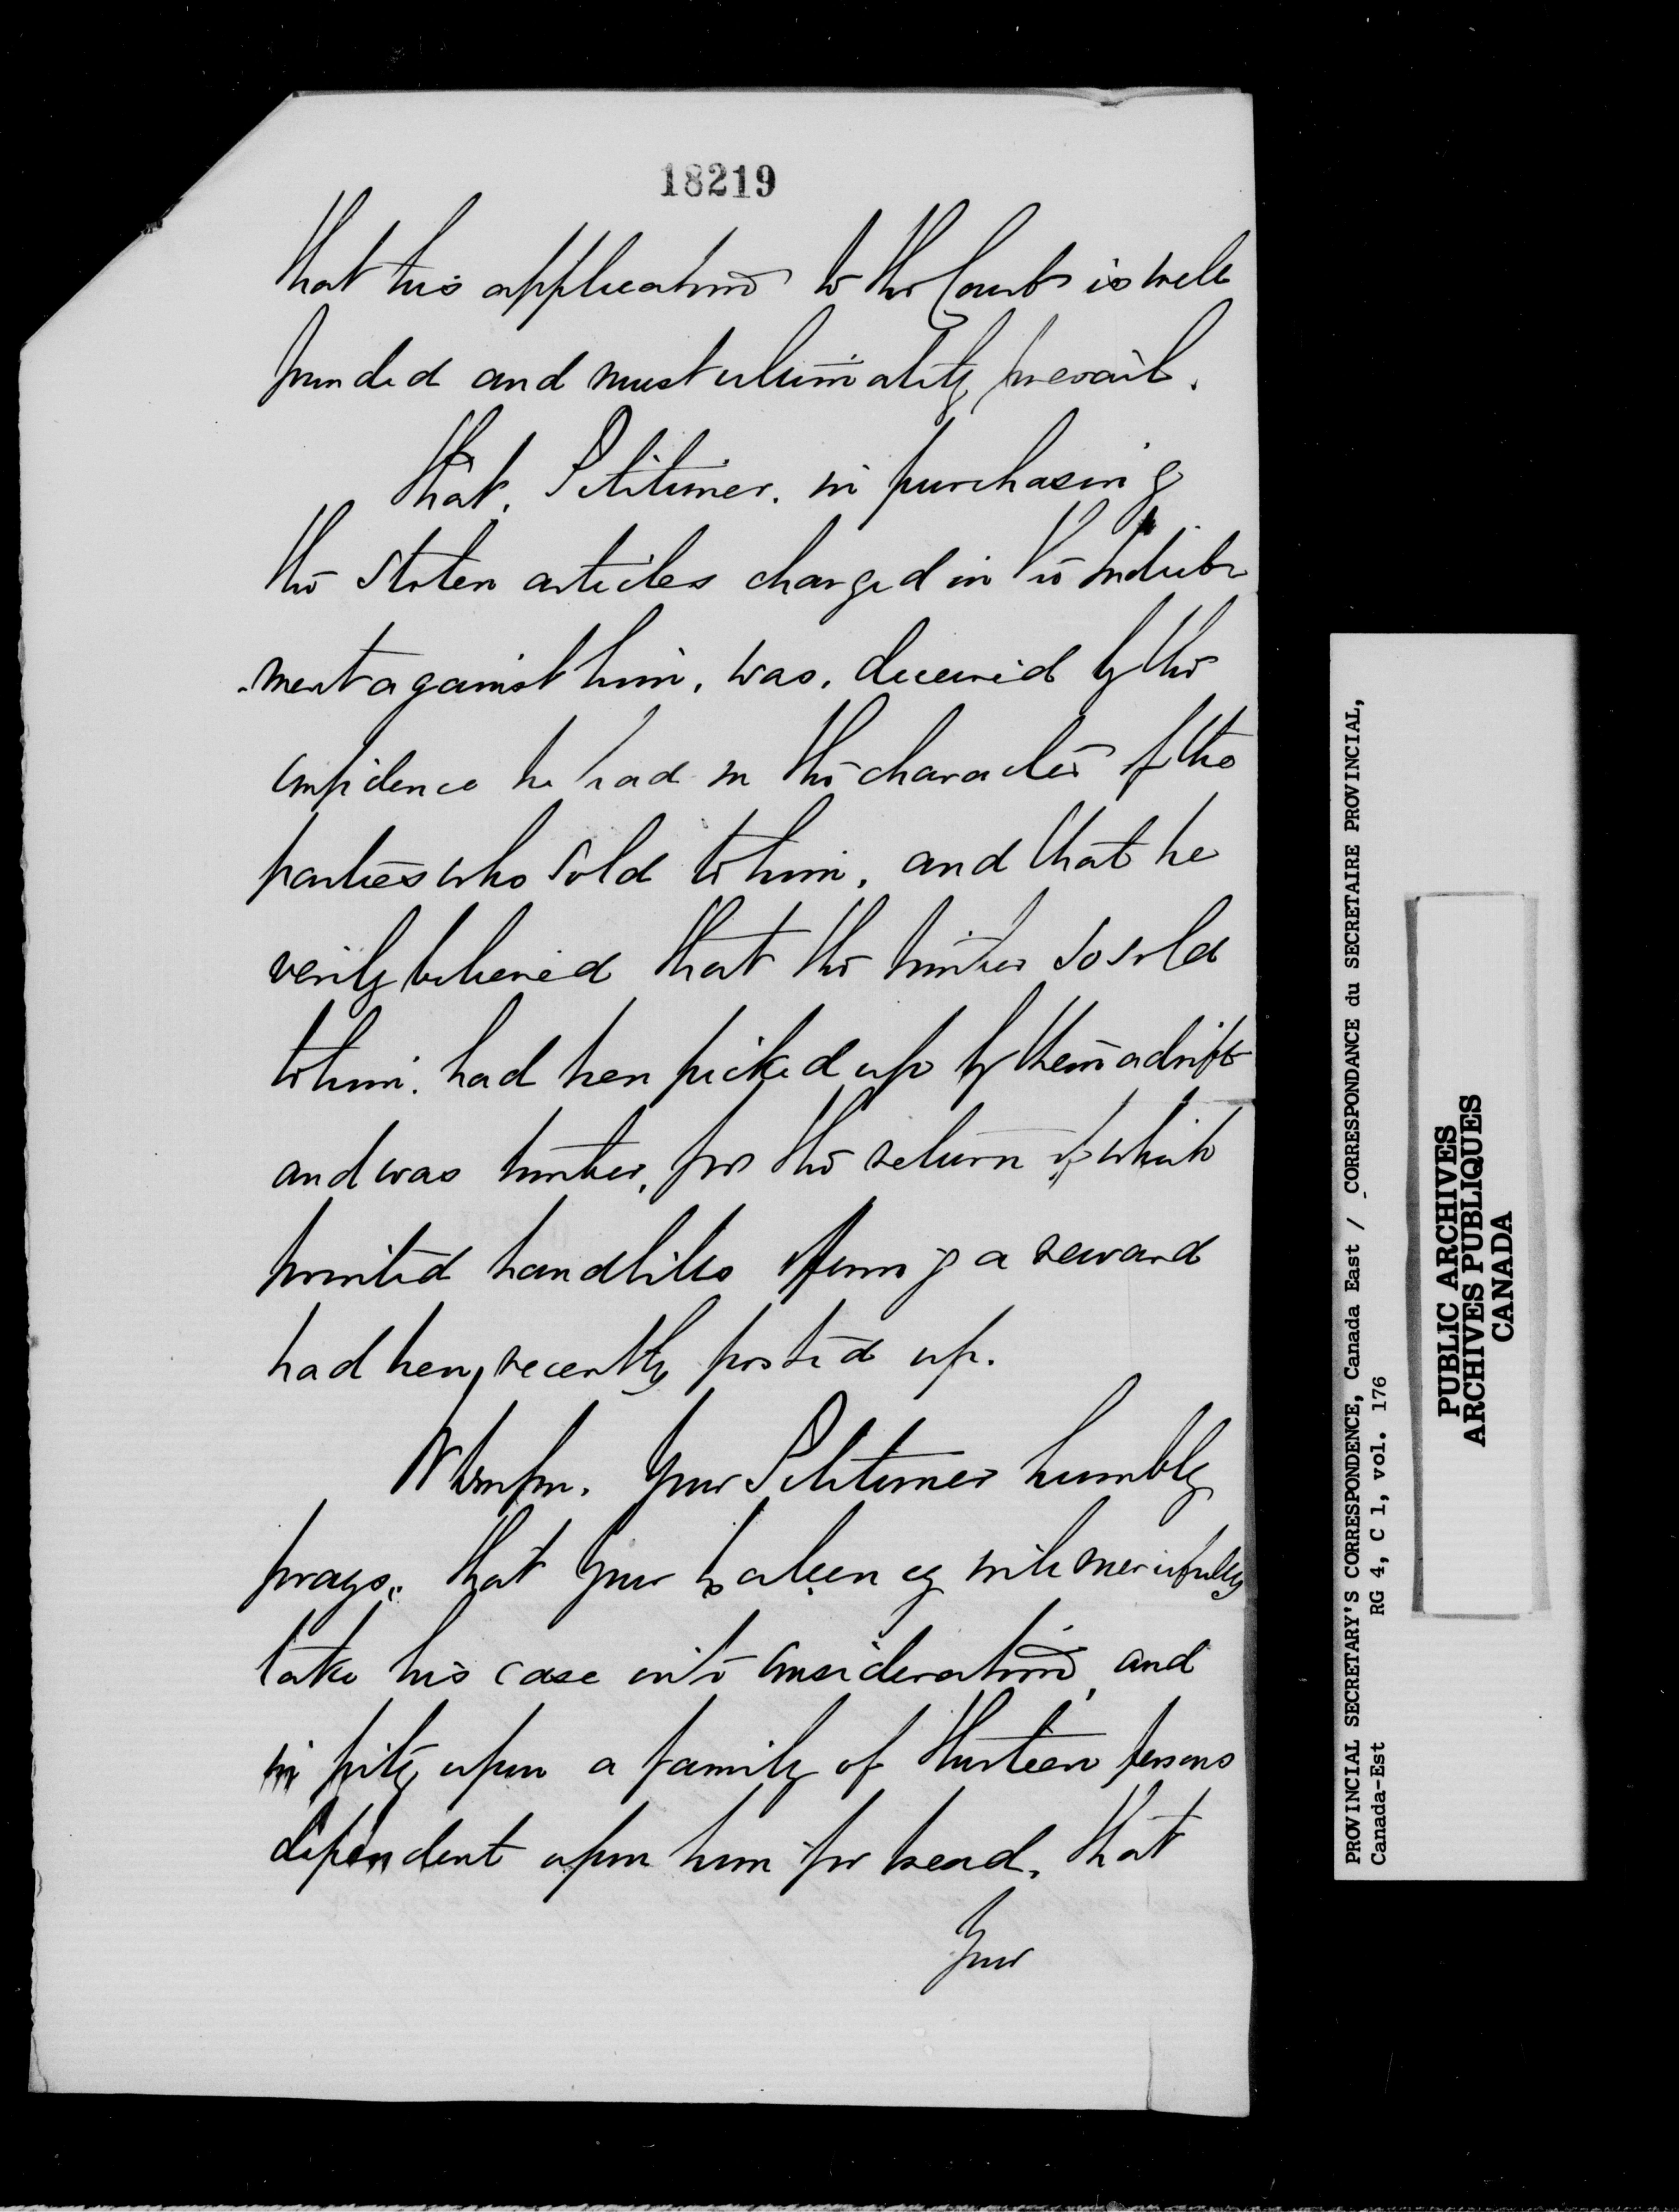 18219
that his application to the Court is well
founded and must ultimately prevail.
That, Petitioner, in purchasing
the stolen articles charged in the Indict
-ment against him, was, deceived by the
confidence he had in the character of the
parties who sold to him, and that he
verily believed that the timber so sold
to him, had been picked up by them adrift
and was timber, for the return of which
printed handbills offering a reward
had been recently posted up.
Wherefore, Your Petitioner humbly
prays, that Your Excellency will mercifully
take his case into consideration, and
in pity upon a family of thirteen persons
dependent upon him for bread, that
Your
PROVINCIAL SECRETARY'S CORRESPONDENCE, Canada East / CORRESPONDANCE du SECRETAIRE PROVINCIAL,
Canada-Est RG 4, C 1, vol. 176
PUBLIC ARCHIVES
ARCHIVES PUBLIQUES
CANADA